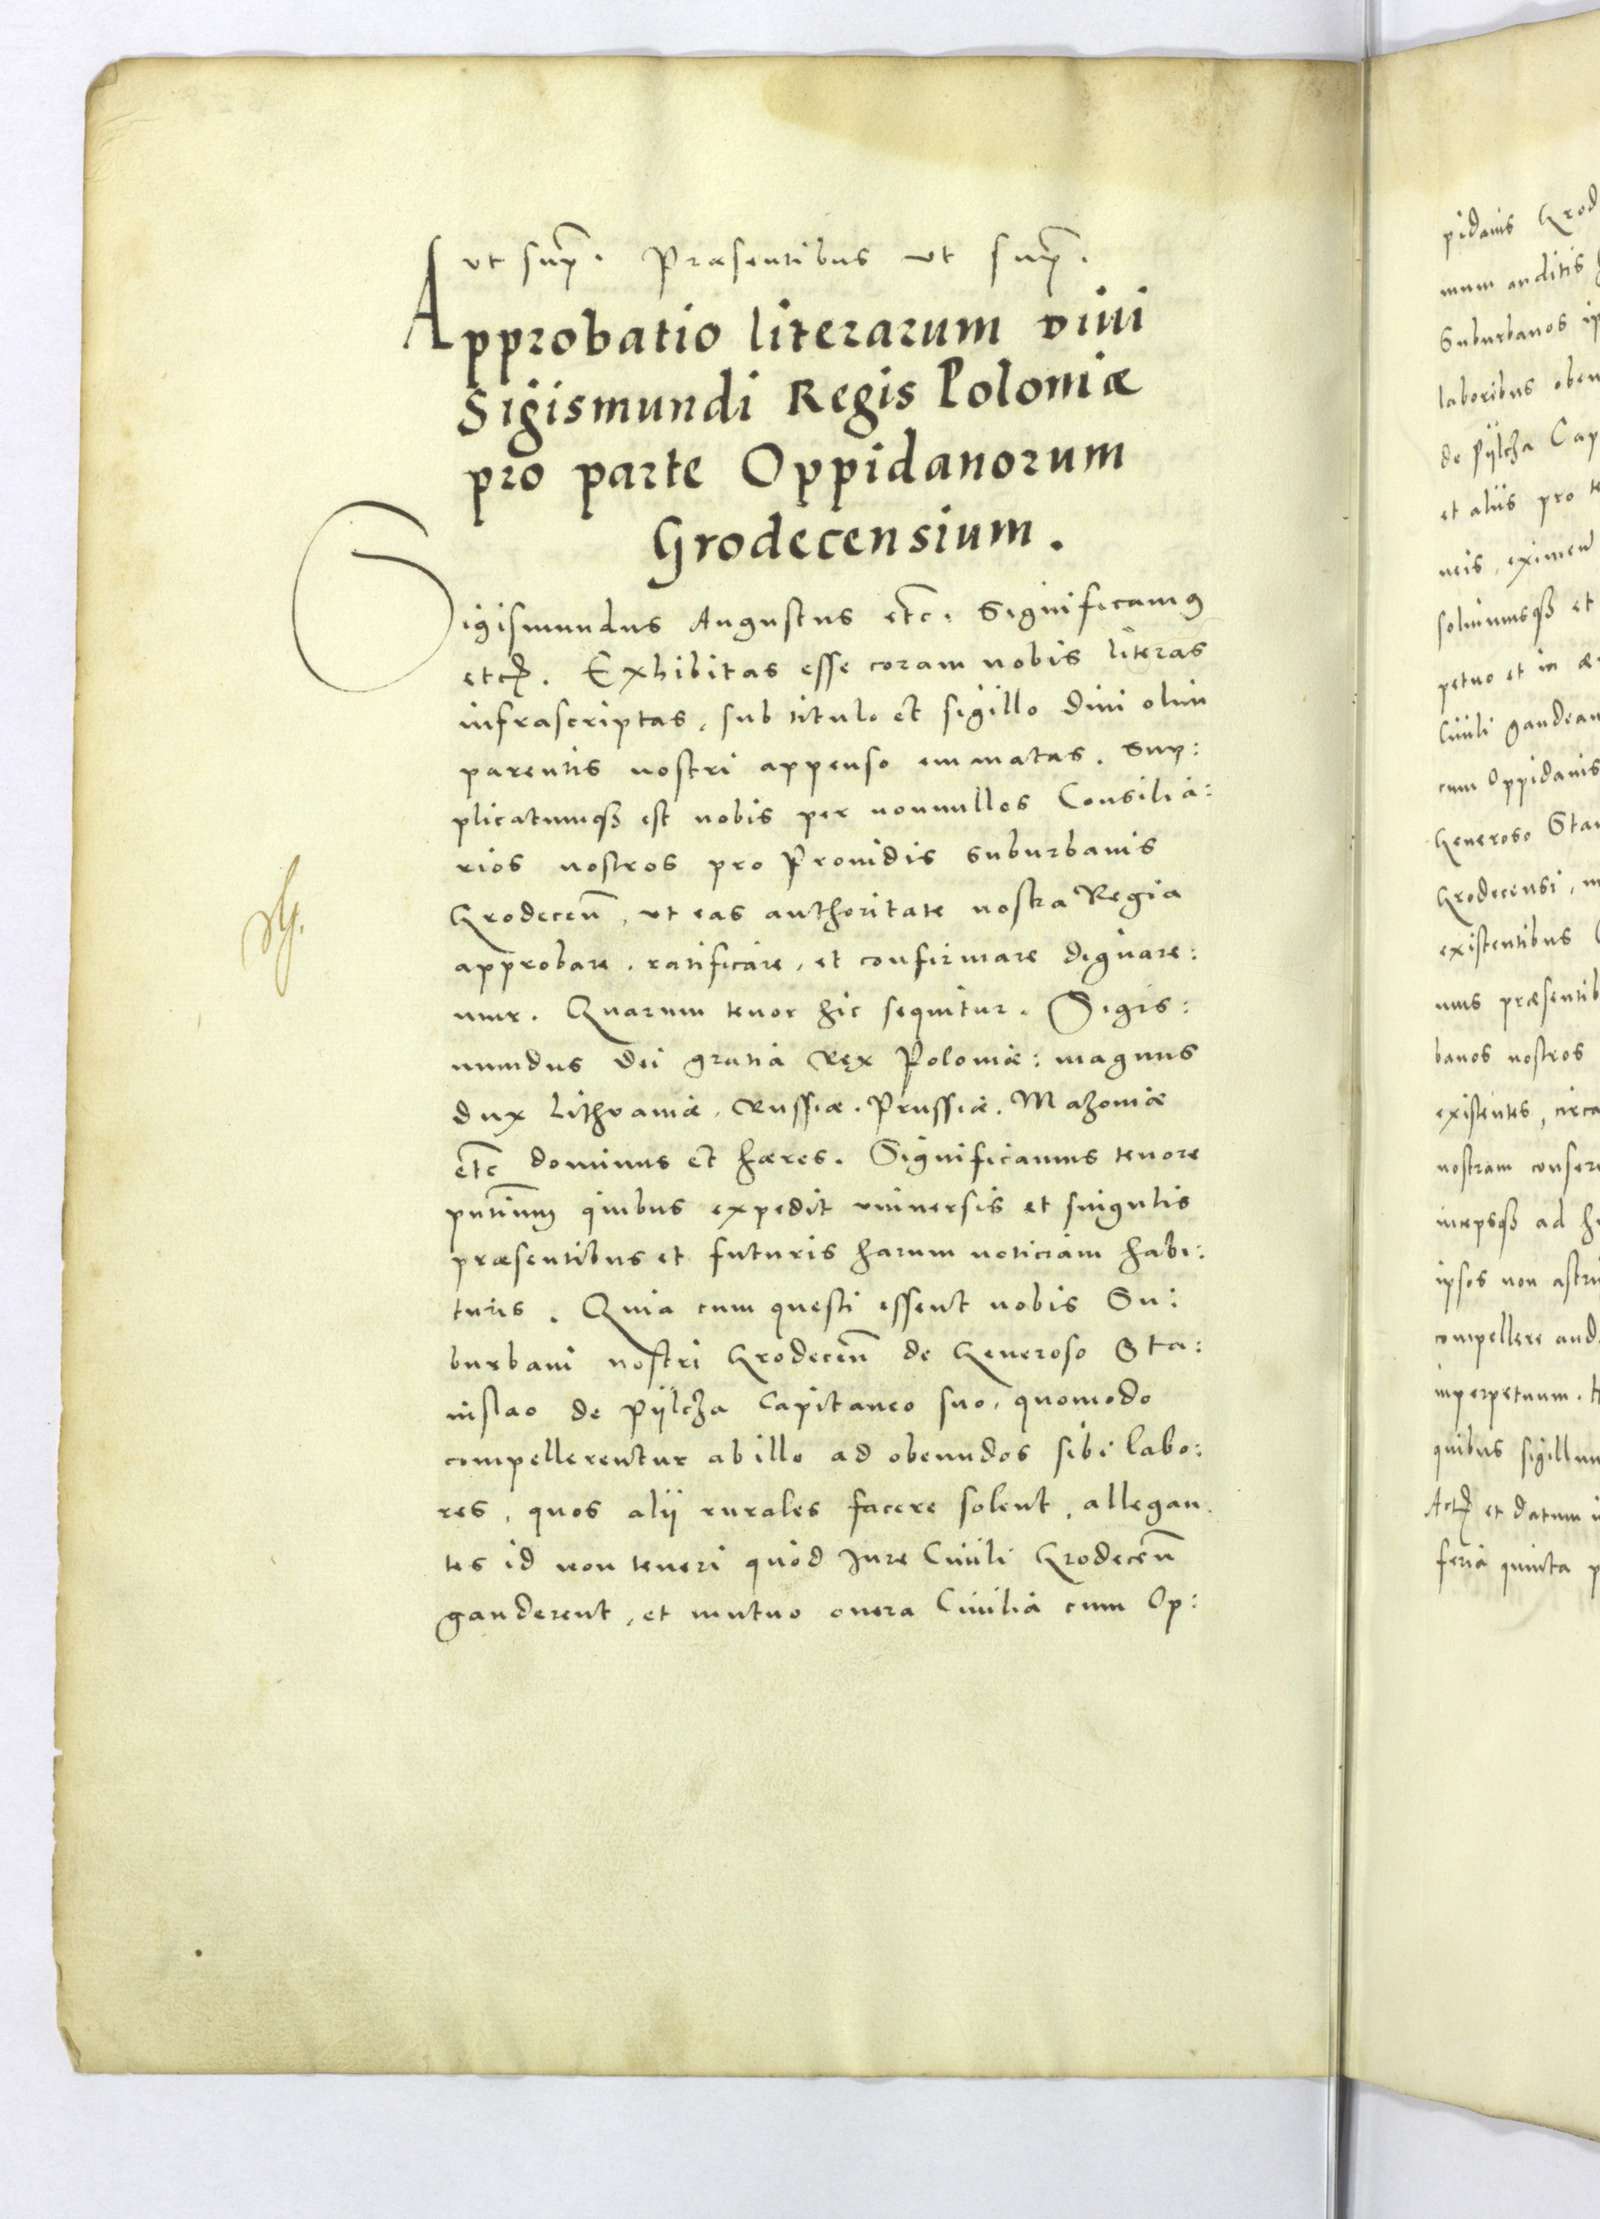 vt sup. Præsentibus vt sup.
Approbatio literarum diui
Sigismundi Regis Poloniæ
pro parte Oppidanorum
Grodecensium.
Sigismundus Augustus etc. Significamus
etc. Exhibitas esse coram nobis literas
infrascriptas, sub titulo et sigillo diui olim
parentis nostri appenso emanatas. Sup:
plicatumqȝ est nobis per nonnullos Consilia:
rios nostros pro Prouidis suburbanis
Grodeceñ, vt eas authoritate nostra Regia
approbare, ratificare, et confirmare dignare:
mur. Quarum tenor hic sequitur. Sigis:
mundus dei gratia Rex Poloniæ: magnus
dux Lithvaniæ, Russiæ, Prussiæ, Mazoniæ
etc dominus et hæres. Significamus tenore
pntium quibus expedit vniuersis et singulis
præsentibus et futuris harum noticiam habi:
turis. Quia cum questi essent nobis Su:
burbani nostri Grodeceñ de Generoso Sta:
nislao de Pijlcza Capitaneo suo, quomodo
compellerentur ab illo ad obeundos sibi labo:
res, quos alij rurales facere solent, allegan
tes id non teneri quod Jure Ciuili Grodeceñ
gauderent, et mutuo onera Ciuilia cum Op:
pidanis Grod
mum auditis
Suburbanos ip
laboribus obeu
de Pijlcza Cap
et alijs pro te
neis, eximen
soluimusqȝ et
petuo et in
Ciuili gaudean
cum Oppidanis
Generoso Stan
Grodecensi,
existentibus
mus præsentib
banos nostros
existentes, circa
nostram conser
ad
ipsos non astri
compellere aud
inperpetuum.
quibus sigillum
Act et datum
feria quinta p